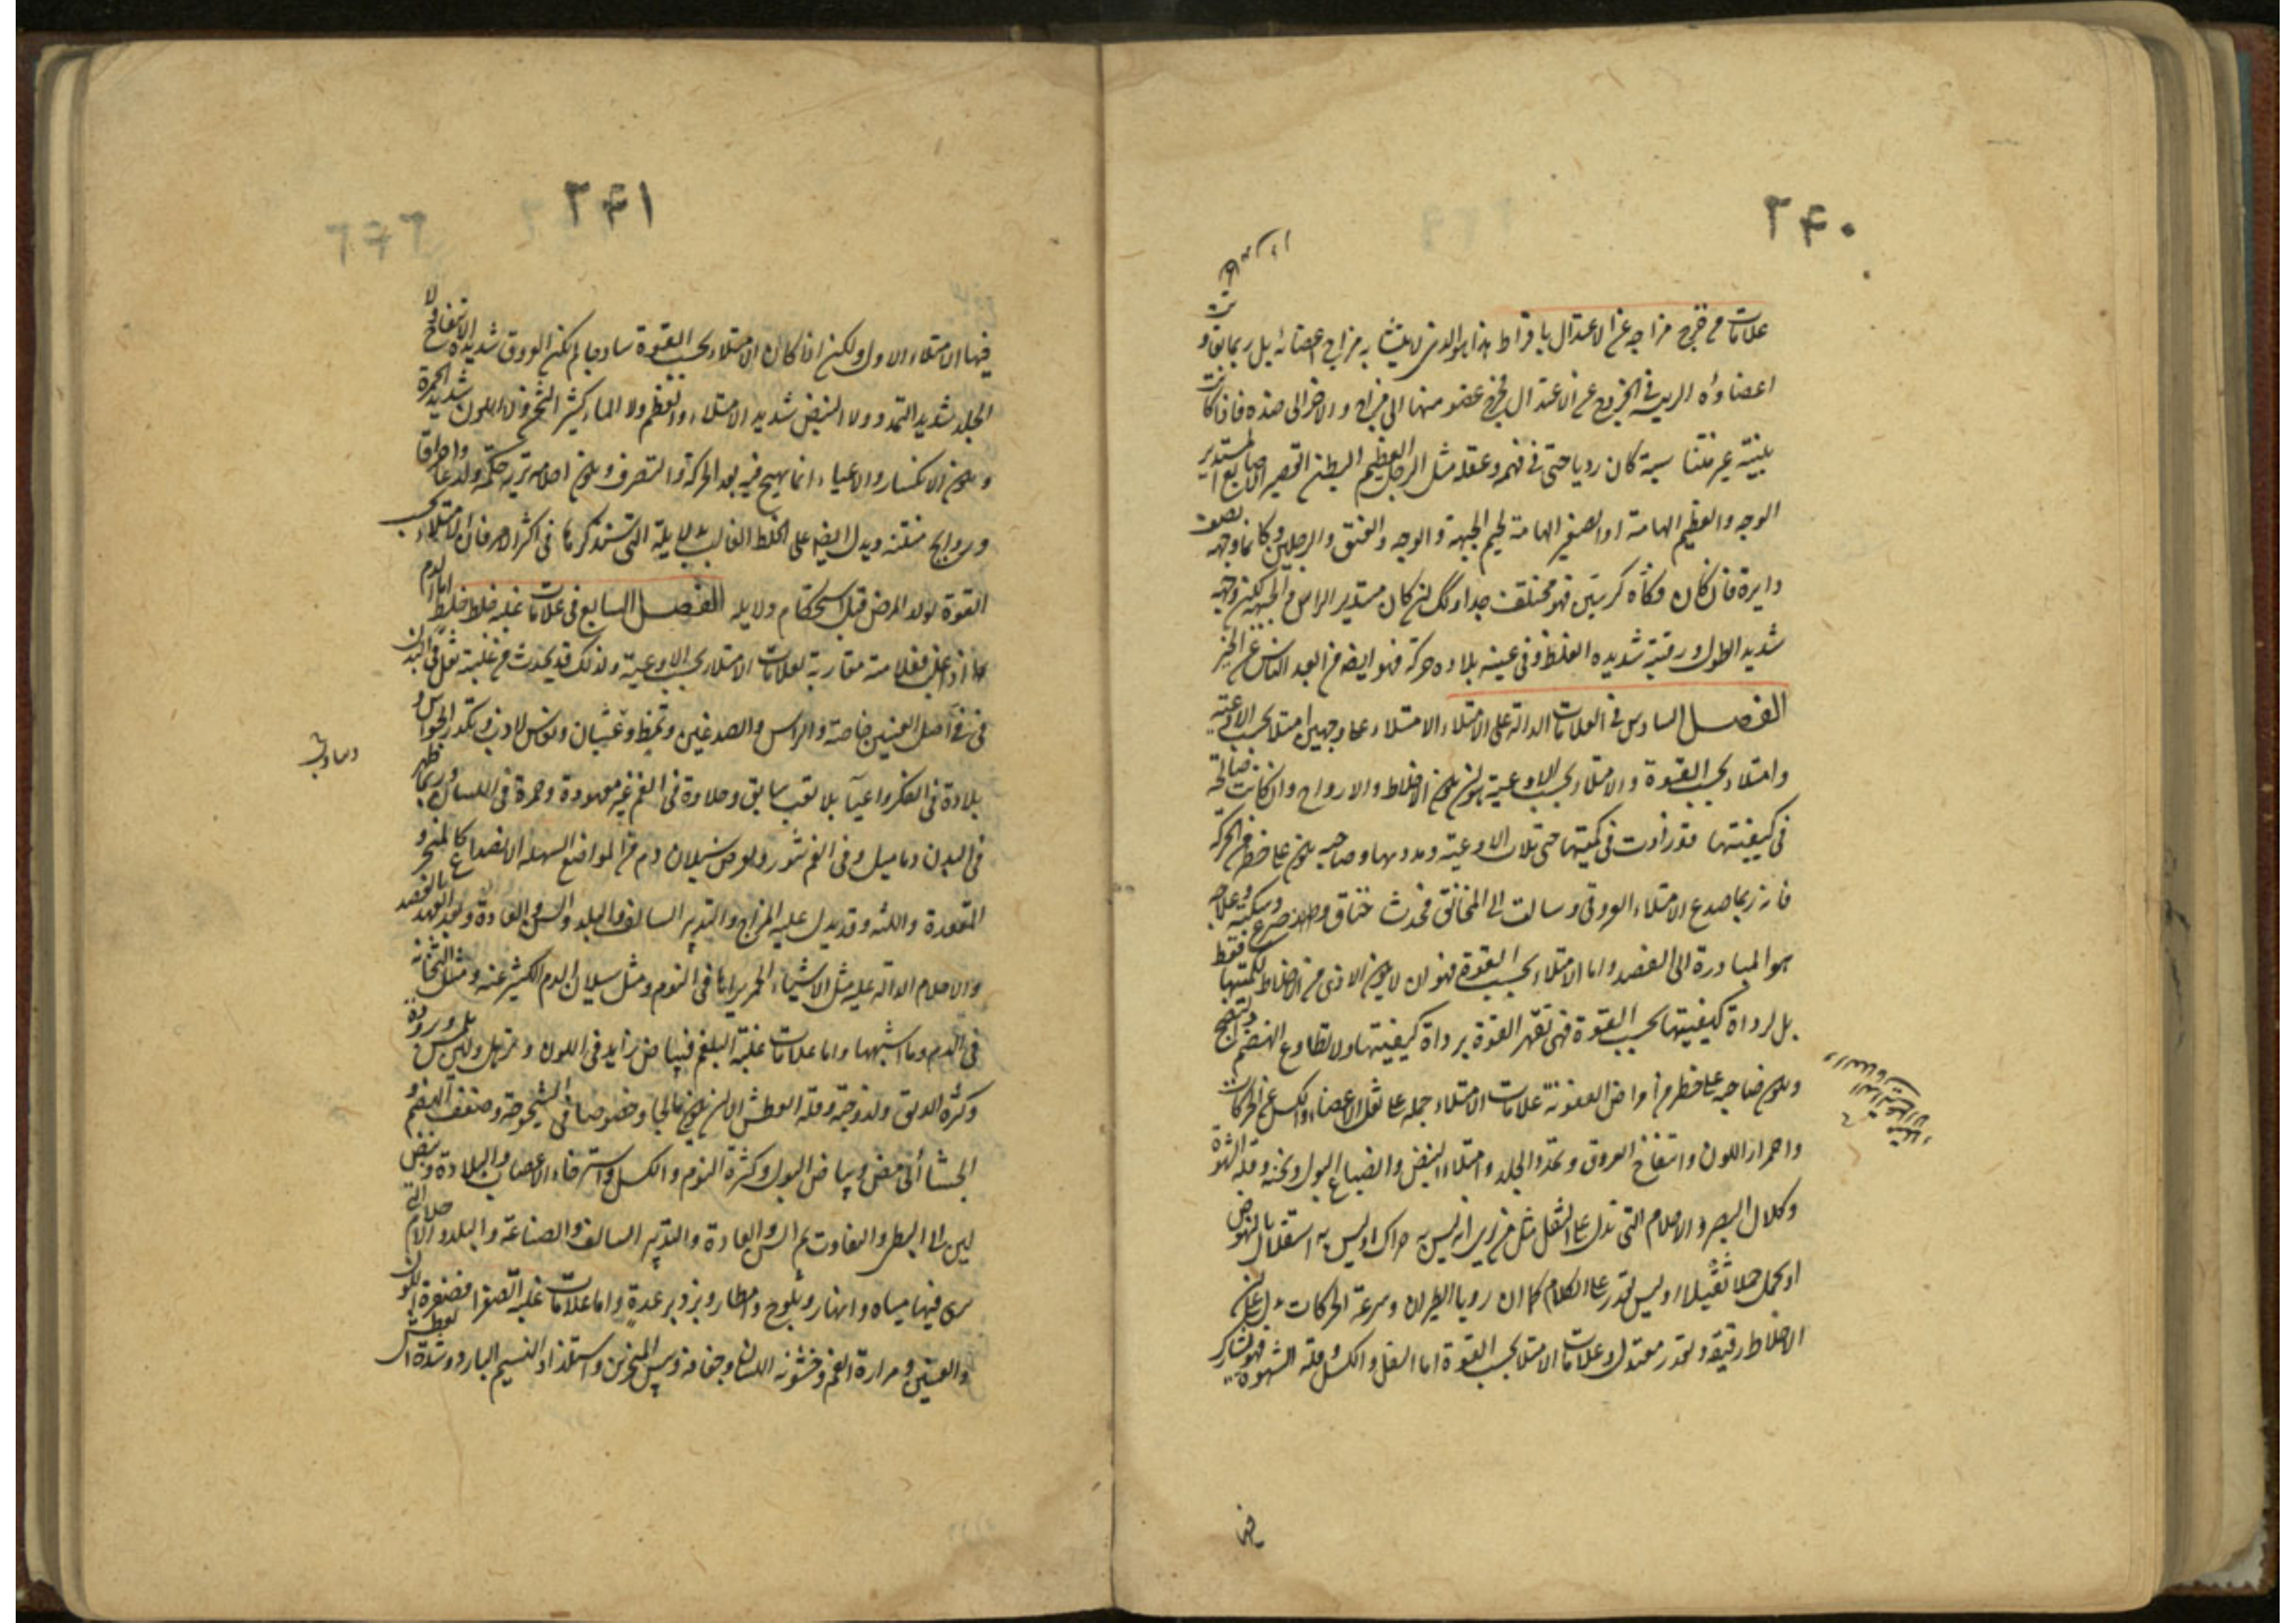 ٢۴٠
علامات من خرج مزاجه عن الاعتدال بافراط هذا هو الذى لا يتشابه مزاج اعضائه بل ربما تعاند
اعضاؤه الرييسة فى الخروج عن الاعتدال فخرج عضو منها الى مزاج والاخر الى ضده فاذا كانت
بنيته غير متناسبة كان رديا حتى فى فهمه وعقله مثل الرجل العظيم البطن القصير الاصابع المستدير
الوجه والعظيم الهامة او الصغير الهامة لحيم الجبهة والوجه والعنق والرجلين وكانما وجهه نصف
دايرة فان كان فكاه كبيرين فهو مختلف جدا وكذلك ان كان مستدير الراس والجبهة لكن وجهه
شديد الطول ورقبته شديدة الغلظ وفى عينيه بلادة حركة فهو ايضا من ابعد الناس عن الخير
الفصل السادس فى العلامات الدالة على الامتلاء الامتلاء على وجهين امتلاء بحسب الاوعية
وامتلاء بحسب القوة والامتلاء بحسب الاوعية هو ان يكون الاخلاط والارواح وان كانت صالحة
فى كيفيتها قد زادت فى كميتها حتى ملأت الاوعية ومددتها وصاحبه يكون على خطر من الحركة
فانه ربما صدع الامتلاء العروق وسالت الى المخانق فحدث خناق وصرع وسكتة وعلاجه
هو المبادرة الى الفصد واما الامتلاء بحسب القوة فهو ان لا يكون الاذى من الاخلاط لكميتها فقط
بل لرداة كيفيتها بحسب القوة فهى تقهر القوة برداة كيفيتها ولا تطاوع الهضم والنضج
ويكون صاحبه على خطر من امراض العفونة علامات الامتلاء جملة على ثقل الاعضاء والكسل عن الحركات
واحمرار اللون وانتفاخ العروق وتمدد الجلد وامتلاء النبض وانصباغ البول وثخنه وقلة الشهوة
وكلال البصر والاحلام التى تدل على الثقل مثل من يرى انه ليس به حراك او ليس به استقلال بالنهوض
او يحمل حملا ثقيلا او ليس يقدر على الكلام كما ان رويا الطيران وسرعة الحركات يدل على ان
الاخلاط رقيقة وبقدر معتدل وعلامات الامتلا بحسب القوة اما الثقل والكسل وقلة الشهوة فهو تشارك
فيها
٢۴١
فيها الامتلاء الاول ولكن اذا كان الامتلاء بحسب القوة ساذجا لم تكن العروق شديدة الانتفاخ ولا
الجلد شديد التمدد ولا النبض شديد الامتلاء والعظم ولا الماء كثير الثخن ولا اللون شديد الحمرة
ويكون الانكسار والاعياء انما يهيج فيه بعد الحركة والتصرف ويكون احلامه تريه حكة ولذعا واحراقا
وروايح منتنة ويدل ايضا على الخلط الغالب بدلايله التى سنذكرها فى اكثر الامر فان الامتلاء بحسب
القوة يولد المرض قبل استحكام دلايله الفصل السابع فى علامات غلبة خلط خلط اما الدم
اذا غلب فعلامته مقاربة لعلامات الامتلاء بحسب الاوعية ولذلك قد يحدث من غلبته ثقل فى البدن
فى اصل العينين خاصة والراس والصدغين وتمط وغشيان ونعاس لازب وتكدر الحواس و
بلادة فى الفكر واعياء بلا تعب سابق وحلاوة فى الفم غير معهودة وحمرة فى اللسان وربما ظهر
فى البدن دماميل وفى الفم بثور ويعرض سيلان دم من المواضع السهلة الانصداع كالمنخر و
المقعدة واللثة وقد يدل عليه المزاج والتدبير السالف والبلد والسن والعادة وبعد العهد بالفصد
والاحلام الدالة عليه مثل الاشياء الحمر يراها فى النوم ومثل سيلان الدم الكثير عنه ومثل الثخانة
فى الدم وما اشبهها واما علامات غلبة البلغم فبياض زايد فى اللون وترهل ولين ملمس وبرودة
وكثرة الريق ولزوجته وقلة العطش الا ان يكون مالحا وخصوصا فى الشيخوخة وضعف الهضم و
الجشا الحامض وبياض البول وكثرة النوم والكسل واسترخاء الاعصاب والبلادة ونبض
لين الى البطء والتفاوت ثم السن والعادة والتدبير السالف والصناعة والبلد والاحلام التى
يرى فيها مياه وانهار وثلوج وامطار وبرد برعدة واما علامات غلبة الصفرا فصفرة اللون
والعينين ومرارة الفم وخشونة اللسان وجفافه ويبس المنخرين واستلذاذ النسيم البارد وشدة العطش